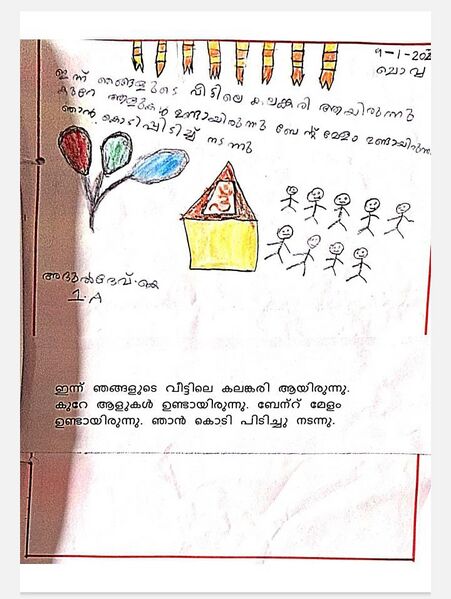 9-1-202
ചൊവ്വ
ഇന്ന് ഞങ്ങളുടെ വീട്ടിലെ കലങ്കരി ആയിരുന്നു
കുറേ ആളുകൾ ഉണ്ടായിരുന്നു ബേന്റ് മേളം ഉണ്ടായിരുന്നു
ഞാൻ കൊടിപിടിച്ച് നടന്നു
അതുൽദേവ്.കെ
1.A
ഇന്ന് ഞങ്ങളുടെ വീട്ടിലെ കലങ്കരി ആയിരുന്നു.
കുറേ ആളുകൾ ഉണ്ടായിരുന്നു. ബേന്റ് മേളം
ഉണ്ടായിരുന്നു. ഞാൻ കൊടി പിടിച്ചു നടന്നു.